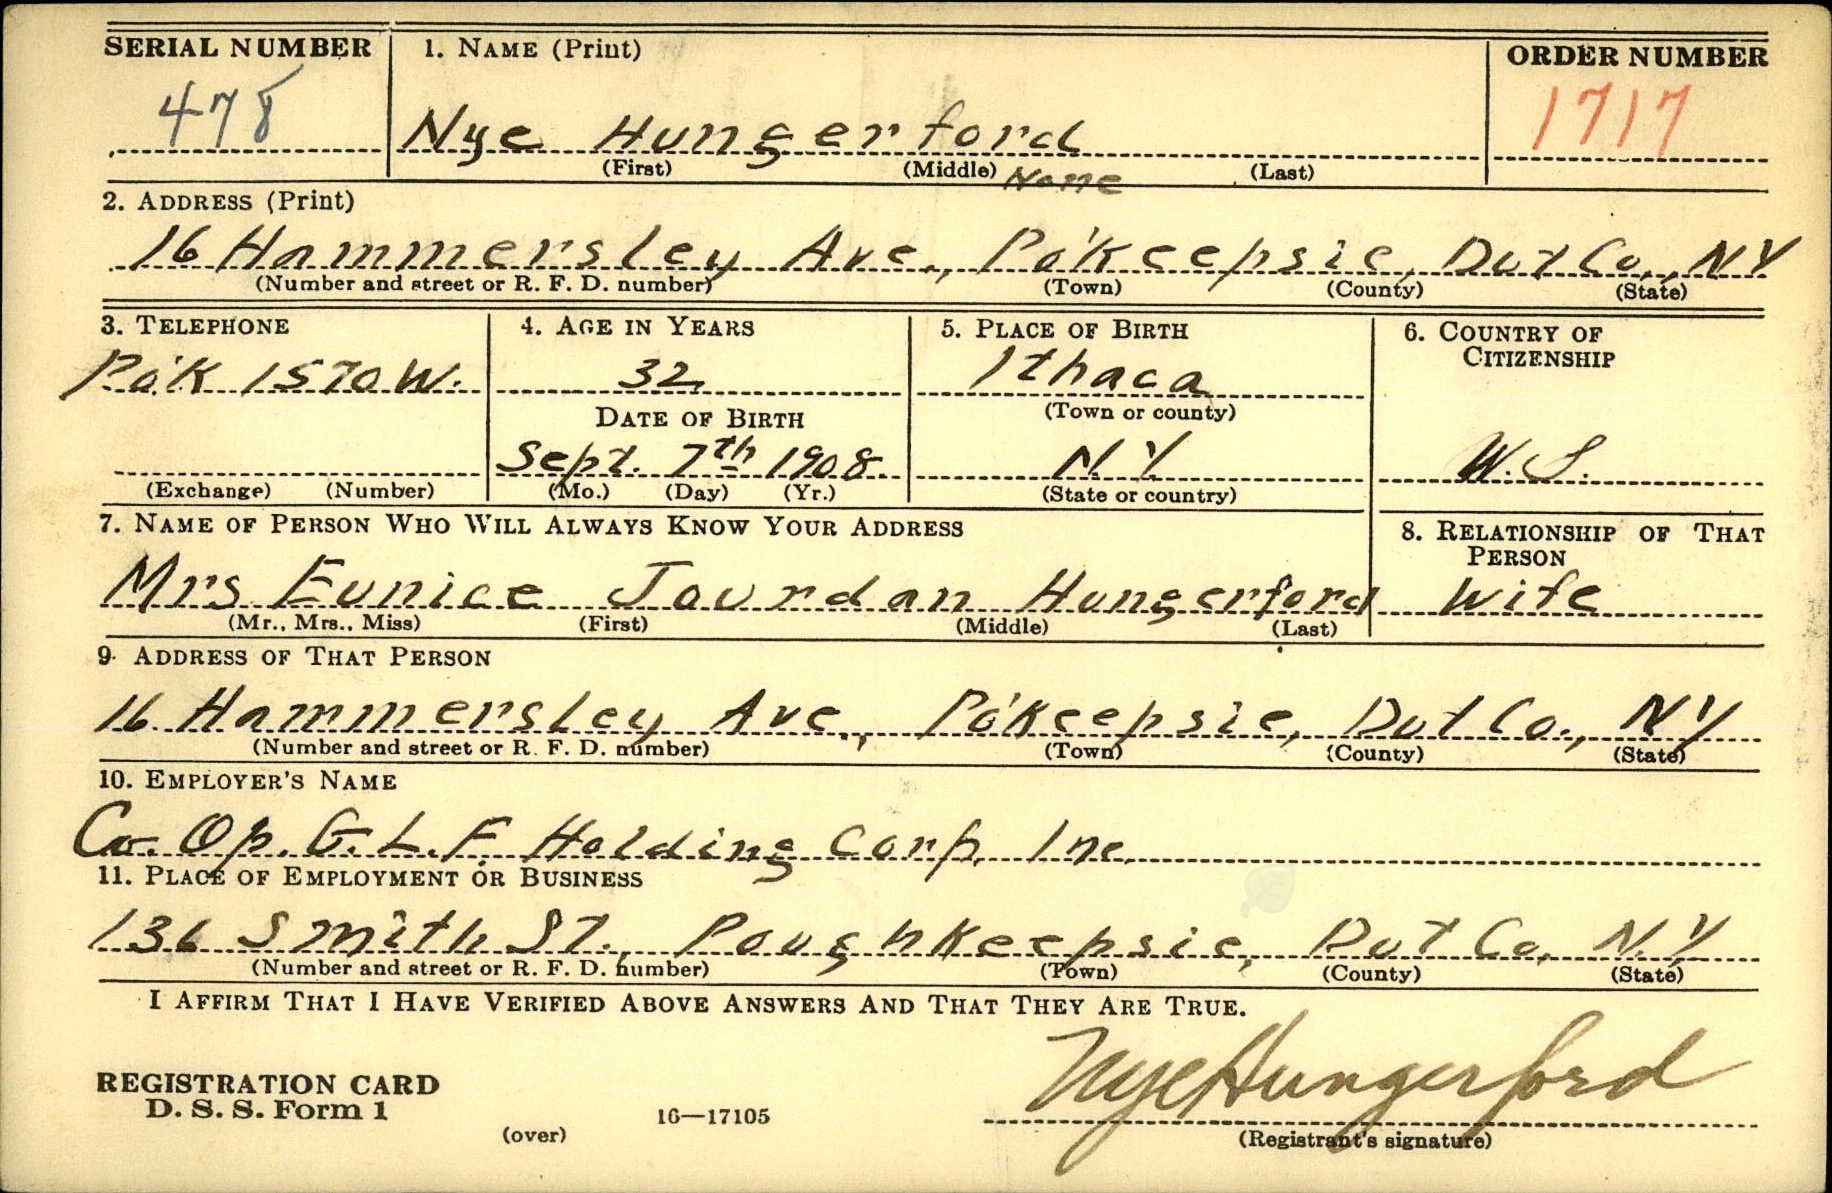 SERIAL NUMBER 1. NAME (Print) ORDER NUMBER
478 Nye Hungerford 1717
(First) (Middle) None (Last)
2. ADDRESS (Print)
16 Hammersley Ave., Po'Keepsie, Dut Co., NY
(Number and street or R. F. D. number) (Town) (County) (State)
3. TELEPHONE 4. AGE IN YEARS 5. PLACE OF BIRTH 6. COUNTRY OF CITIZENSHIP
Po'K 1570W. 32 Ithaca
DATE OF BIRTH (Town or county)
Sept. 7th 1908 N.Y. U.S.
(Exchange) (Number) (Mo.) (Day) (Yr.) (State or country)
7. NAME OF PERSON WHO WILL ALWAYS KNOW YOUR ADDRESS 8. RELATIONSHIP OF THAT PERSON
Mrs Eunice Jourdan Hungerford Wife
(Mr., Mrs., Miss) (First) (Middle) (Last)
9. ADDRESS OF THAT PERSON
16 Hammersley Ave., Po'Keepsie, Dut Co., NY
(Number and street or R. F. D. number) (Town) (County) (State)
10. EMPLOYER'S NAME
Co. Op. G. L. F. Holding Corp. Inc.
11. PLACE OF EMPLOYMENT OR BUSINESS
136 Smith St., Poughkeepsie, Dut Co. N.Y.
(Number and street or R. F. D. number) (Town) (County) (State)
I AFFIRM THAT I HAVE VERIFIED ABOVE ANSWERS AND THAT THEY ARE TRUE.
Nye Hungerford
REGISTRATION CARD
D. S. S. Form 1 16—17105
(over) (Registrant's signature)